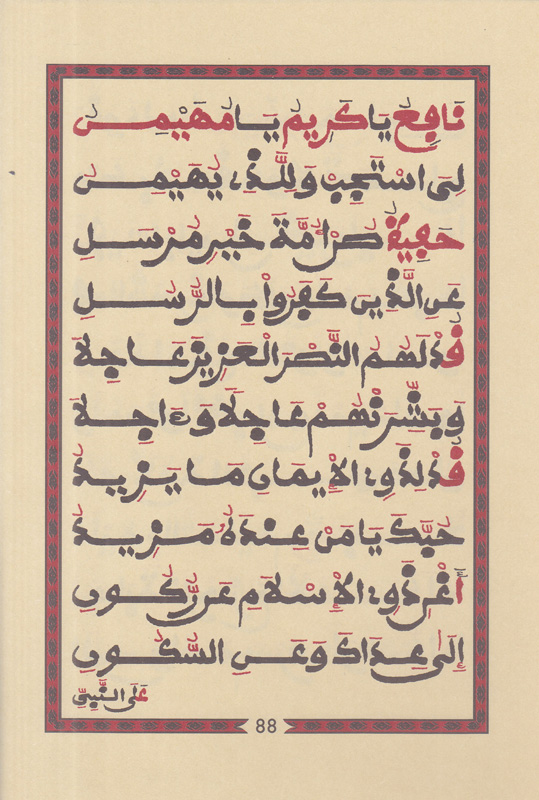 نَافِعُ يَا كَرِيمُ يَا مُهَيْمِنُ
لِىَ اسْتَجِبْ وَلِلَّذِى يُهَيْمِنُ
حَفِيظُ صُنْ اُمَّةَ خَيْرِ مُرْسَلِ
عَنِ الَّذِينَ كَفَرُواْ بِالرُّسُلِ
قُدْ لَهُمُ النَّصْرَ الْعَزِيزَ عَاجِلَا
وَبَشِّرَنْهُمْ عَاجِلًا وَءَاجِلَا
قُدْ لِذَوِى الْإِيمَانِ مَا يَزِيدُ
حُبَّكَ يَا مَنْ عِنْدَهُ مَزِيدُ
اَغْنِ ذَوِى الْإِسْلَامِ عَنْ رُكُونِ
إِلَى عِدَاكَ وَعَنِ السُّكُونِ
عَلَى النَّبِىِّ
88